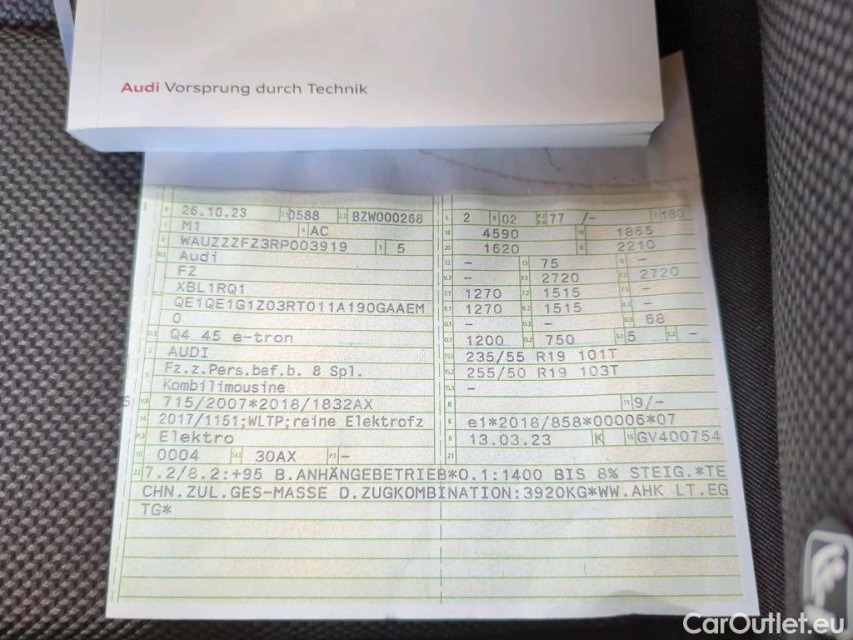 Audi Vorsprung durch Technik
26.10.23 0588 BZW000268 2 02 77 /- 180
M1 AC 4590 1865
WAUZZZFZ3RP003919 5 1620 2210
Audi - 75 -
FZ - 2720 2720
XBL1RQ1 1270 1515 -
QE1QE1G1Z03RT011A190GAAEM 1270 1515 -
0 - - 68
Q4 45 e-tron 1200 750 5 -
AUDI 235/55 R19 101T
Fz.z.Pers.bef.b. 8 Spl. 255/50 R19 103T
Kombilimousine -
715/2007*2018/1832AX 9/-
2017/1151;WLTP;reine Elektrofz e1*2018/858*00006*07
Elektro 13.03.23 K GV400754
0004 30AX -
7.2/8.2:+95 B.ANHÄNGEBETRIEB*O.1:1400 BIS 8% STEIG.*TE
CHN.ZUL.GES-MASSE D.ZUGKOMBINATION:3920KG*WW.AHK LT.EG
TG*
CarOutlet.eu